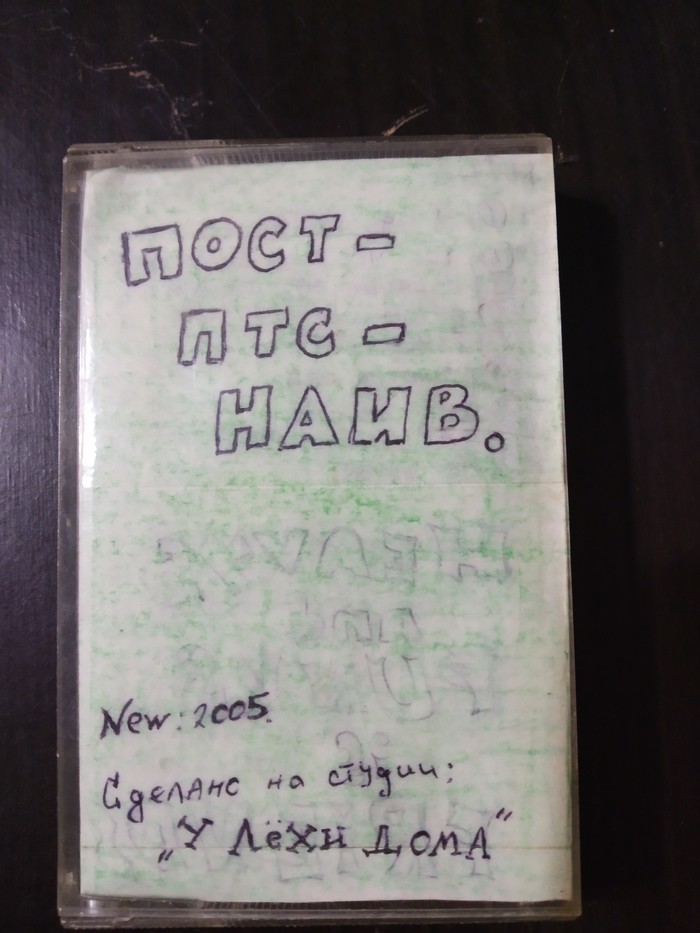 ПОСТ-
ПТС-
НАИВ.
New: 2005.
Сделано на студии:
„У ЛЁХИ ДОМА"